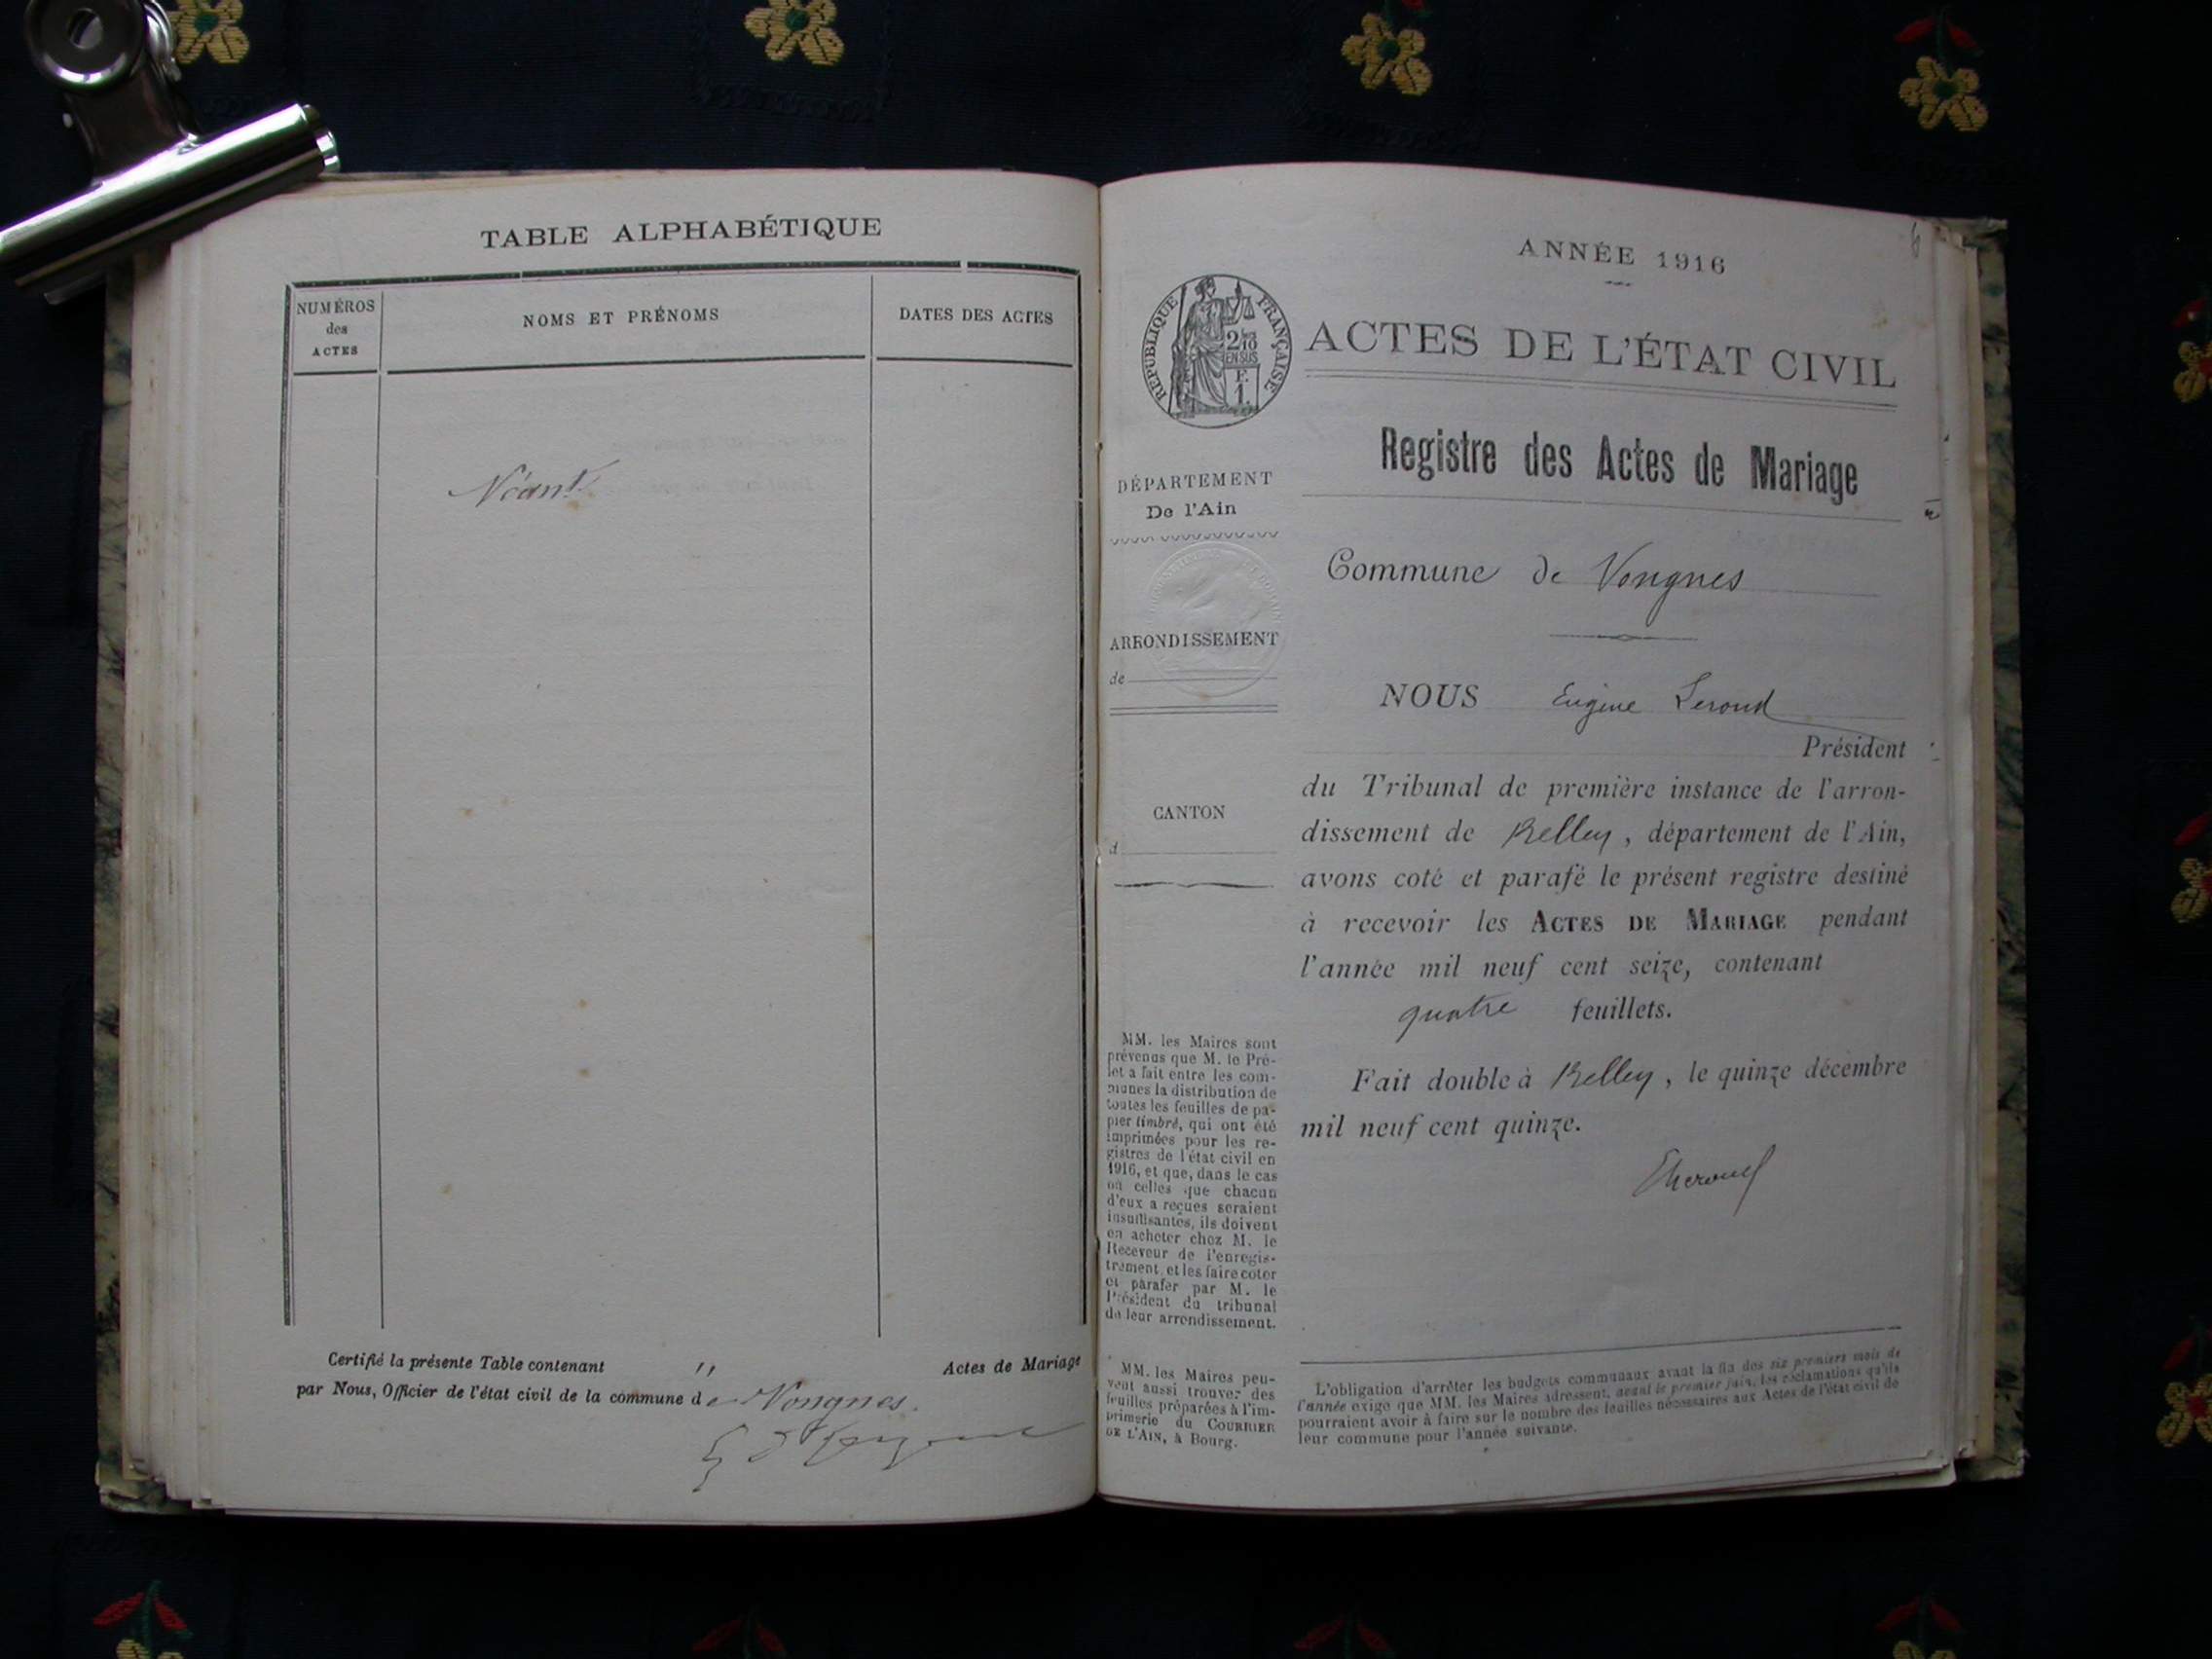 TABLE ALPHABÉTIQUE
NUMÉROS
des
ACTES
NOMS ET PRÉNOMS
DATES DES ACTES
Néant
Certifié la présente Table contenant " Actes de Mariage
par Nous, Officier de l'état civil de la commune de Vongnes.
6
ANNÉE 1916
RÉPUBLIQUE FRANÇAISE
2/10
EN SUS
F.
1.
ACTES DE L'ÉTAT CIVIL
Registre des Actes de Mariage
DÉPARTEMENT
De l'Ain
ARRONDISSEMENT
de
CANTON
d
MM. les Maires sont
prévenus que M. le Pré-
fet a fait entre les com-
munes la distribution de
toutes les feuilles de pa-
pier timbré, qui ont été
imprimées pour les re-
gistres de l'état civil en
1916, et que, dans le cas
où celles que chacun
d'eux a reçues seraient
insuffisantes, ils doivent
en acheter chez M. le
Receveur de l'enregis-
trement, et les faire coter
et parafer par M. le
Président du tribunal
de leur arrondissement.
MM. les Maires peu-
vent aussi trouver des
feuilles préparées à l'im-
primerie du COURRIER
DE L'AIN, à Bourg.
Commune de Vongnes
NOUS Eugène
Président
du Tribunal de première instance de l'arron-
dissement de Belley, département de l'Ain,
avons coté et parafé le présent registre destiné
à recevoir les ACTES DE MARIAGE pendant
l'année mil neuf cent seize, contenant
quatre feuillets.
Fait double à Belley, le quinze décembre
mil neuf cent quinze.
L'obligation d'arrêter les budgets communaux avant la fin des six premiers mois de
l'année exige que MM. les Maires adressent, avant le premier juin, les réclamations qu'ils
pourraient avoir à faire sur le nombre des feuilles nécessaires aux Actes de l'état civil de
leur commune pour l'année suivante.